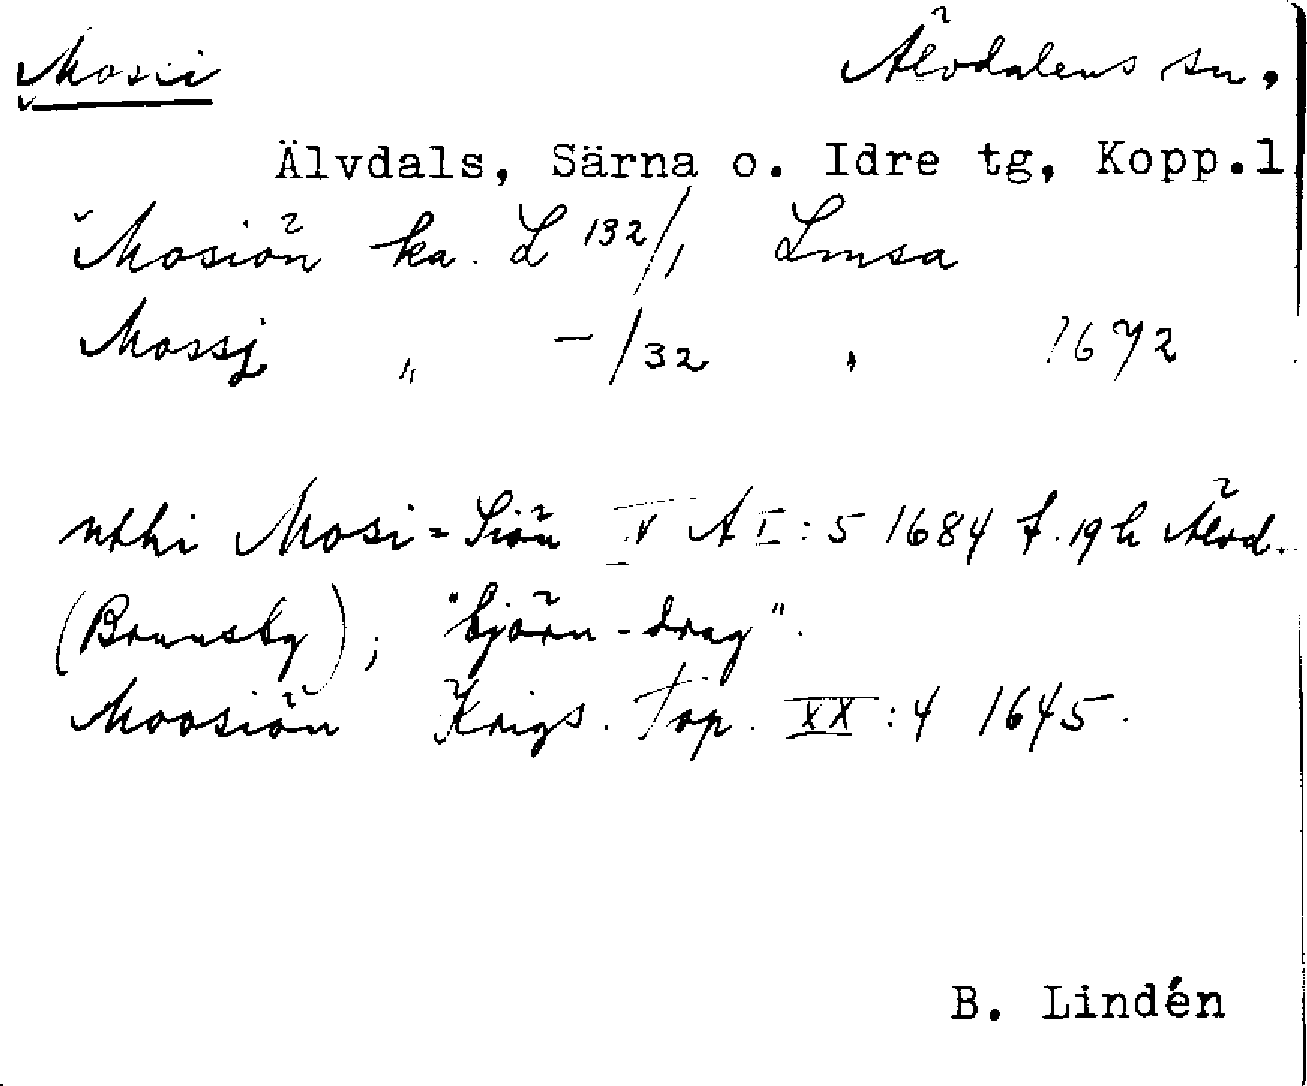 Mosii Älvdalens sn.
Älvdals, Särna o. Idre tg, Kopp.l
Mosiön ka. L 132/1 Lmsa
Mossj „ -/32 „ 1672
utti Mosi=Siön V A I:5 1684 f. 19 h Älvd.
(Brunsby); "björn-drag".
Moosiön Krigs. Top. XX:4 1645.
B. Lindén